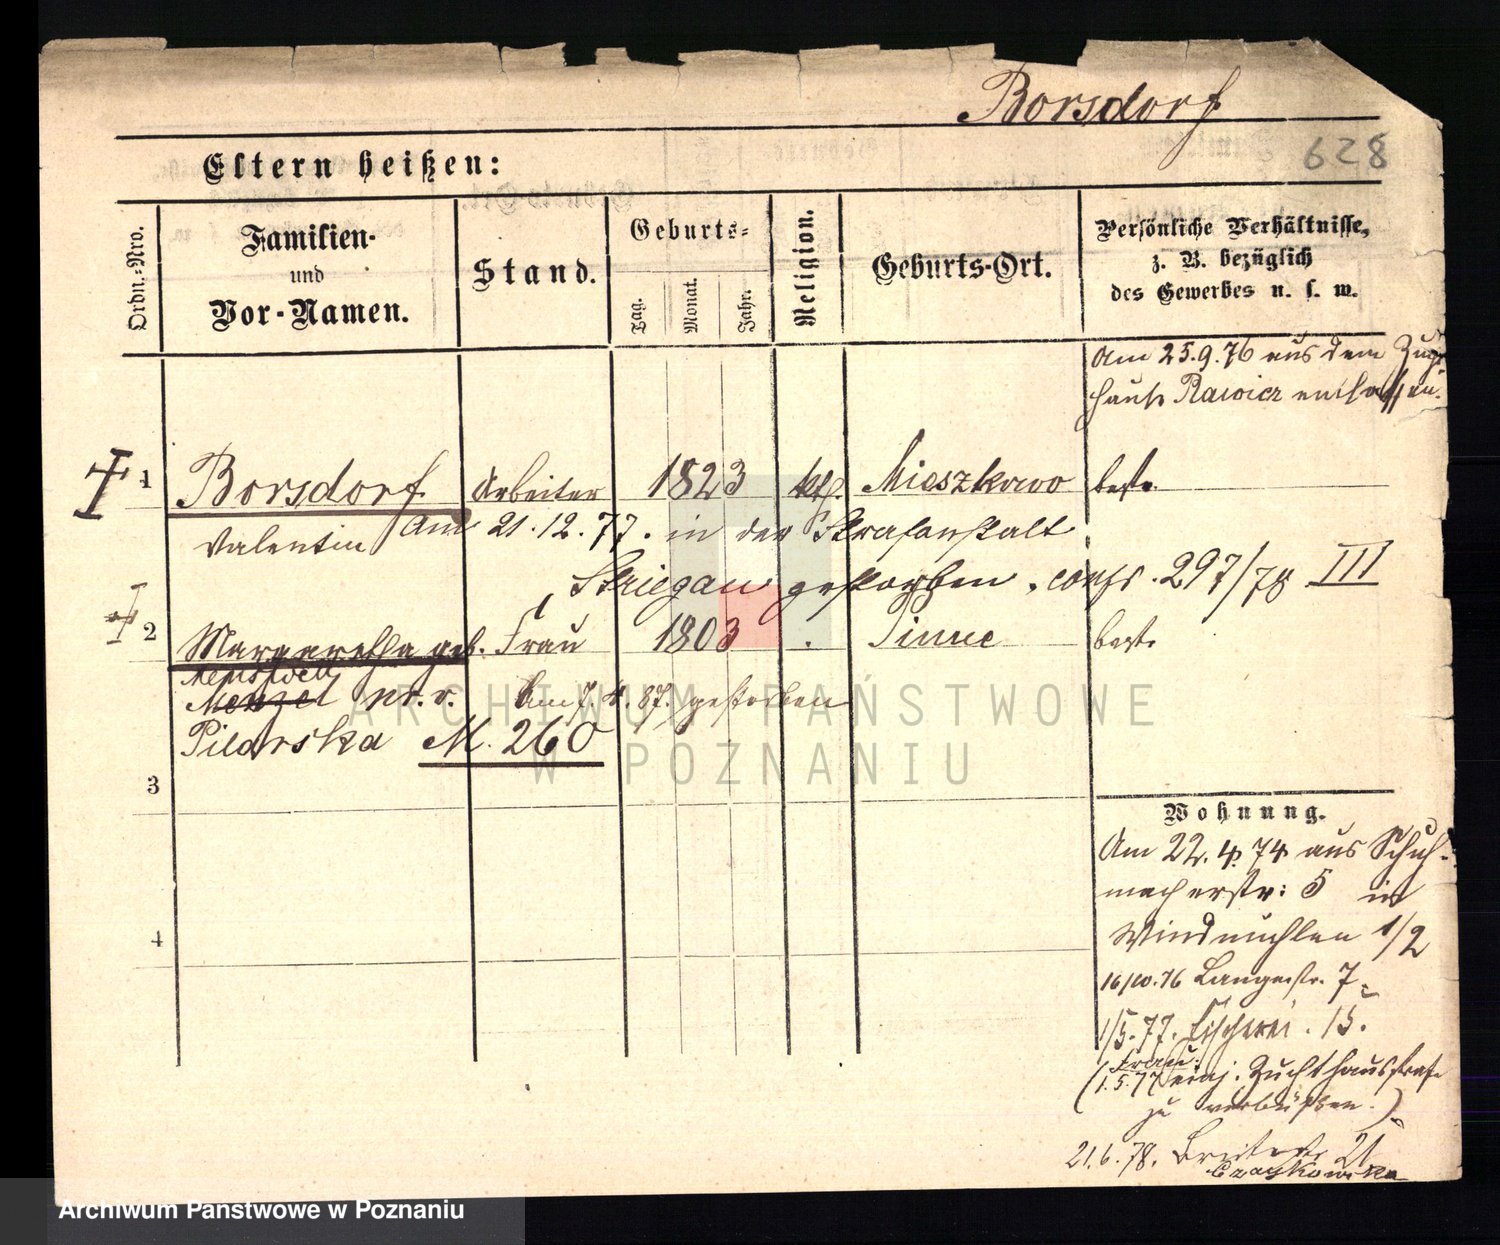 Borsdorf
628
Eltern heißen:
Ordn.-Nro.
Familien-
und
Vor-Namen.
Stand.
Geburts-
Tag.
Monat.
Jahr.
Religion.
Geburts-Ort.
Persönliche Verhältnisse,
z. B. bezüglich
des Gewerbes u. s. w.
Am 25.9.76 aus dem
Rawicz entlassen.
1 Borsdorf Arbeiter 1823 kth. Mieszkowo
Valentin Am 21.12.77. in der Strafanstalt
Striegau gestorben. 297/78 III
2 Margaretha geb. Frau 1803 Pinne
Menzel
Am 7. 4. 87. gestorben
Pilarska M. 260
3
4
Wohnung.
Am 22.4.74 aus Schuh-
macherstr: 5 in
Windmühlen 1/2
16/10.76 Langestr. 7
1/5.77. Fischerei. 15.
Frau:
(1.5.77 Zuchthausstrafe
zu verbüßen.)
21.6.78. Breitestr 21
Czaykowska
ARCHIWUM PAŃSTWOWE
W POZNANIU
Archiwum Państwowe w Poznaniu